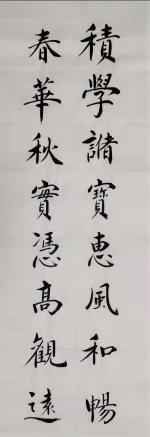 積學諸寶惠風和暢
春華秋實憑高觀遠